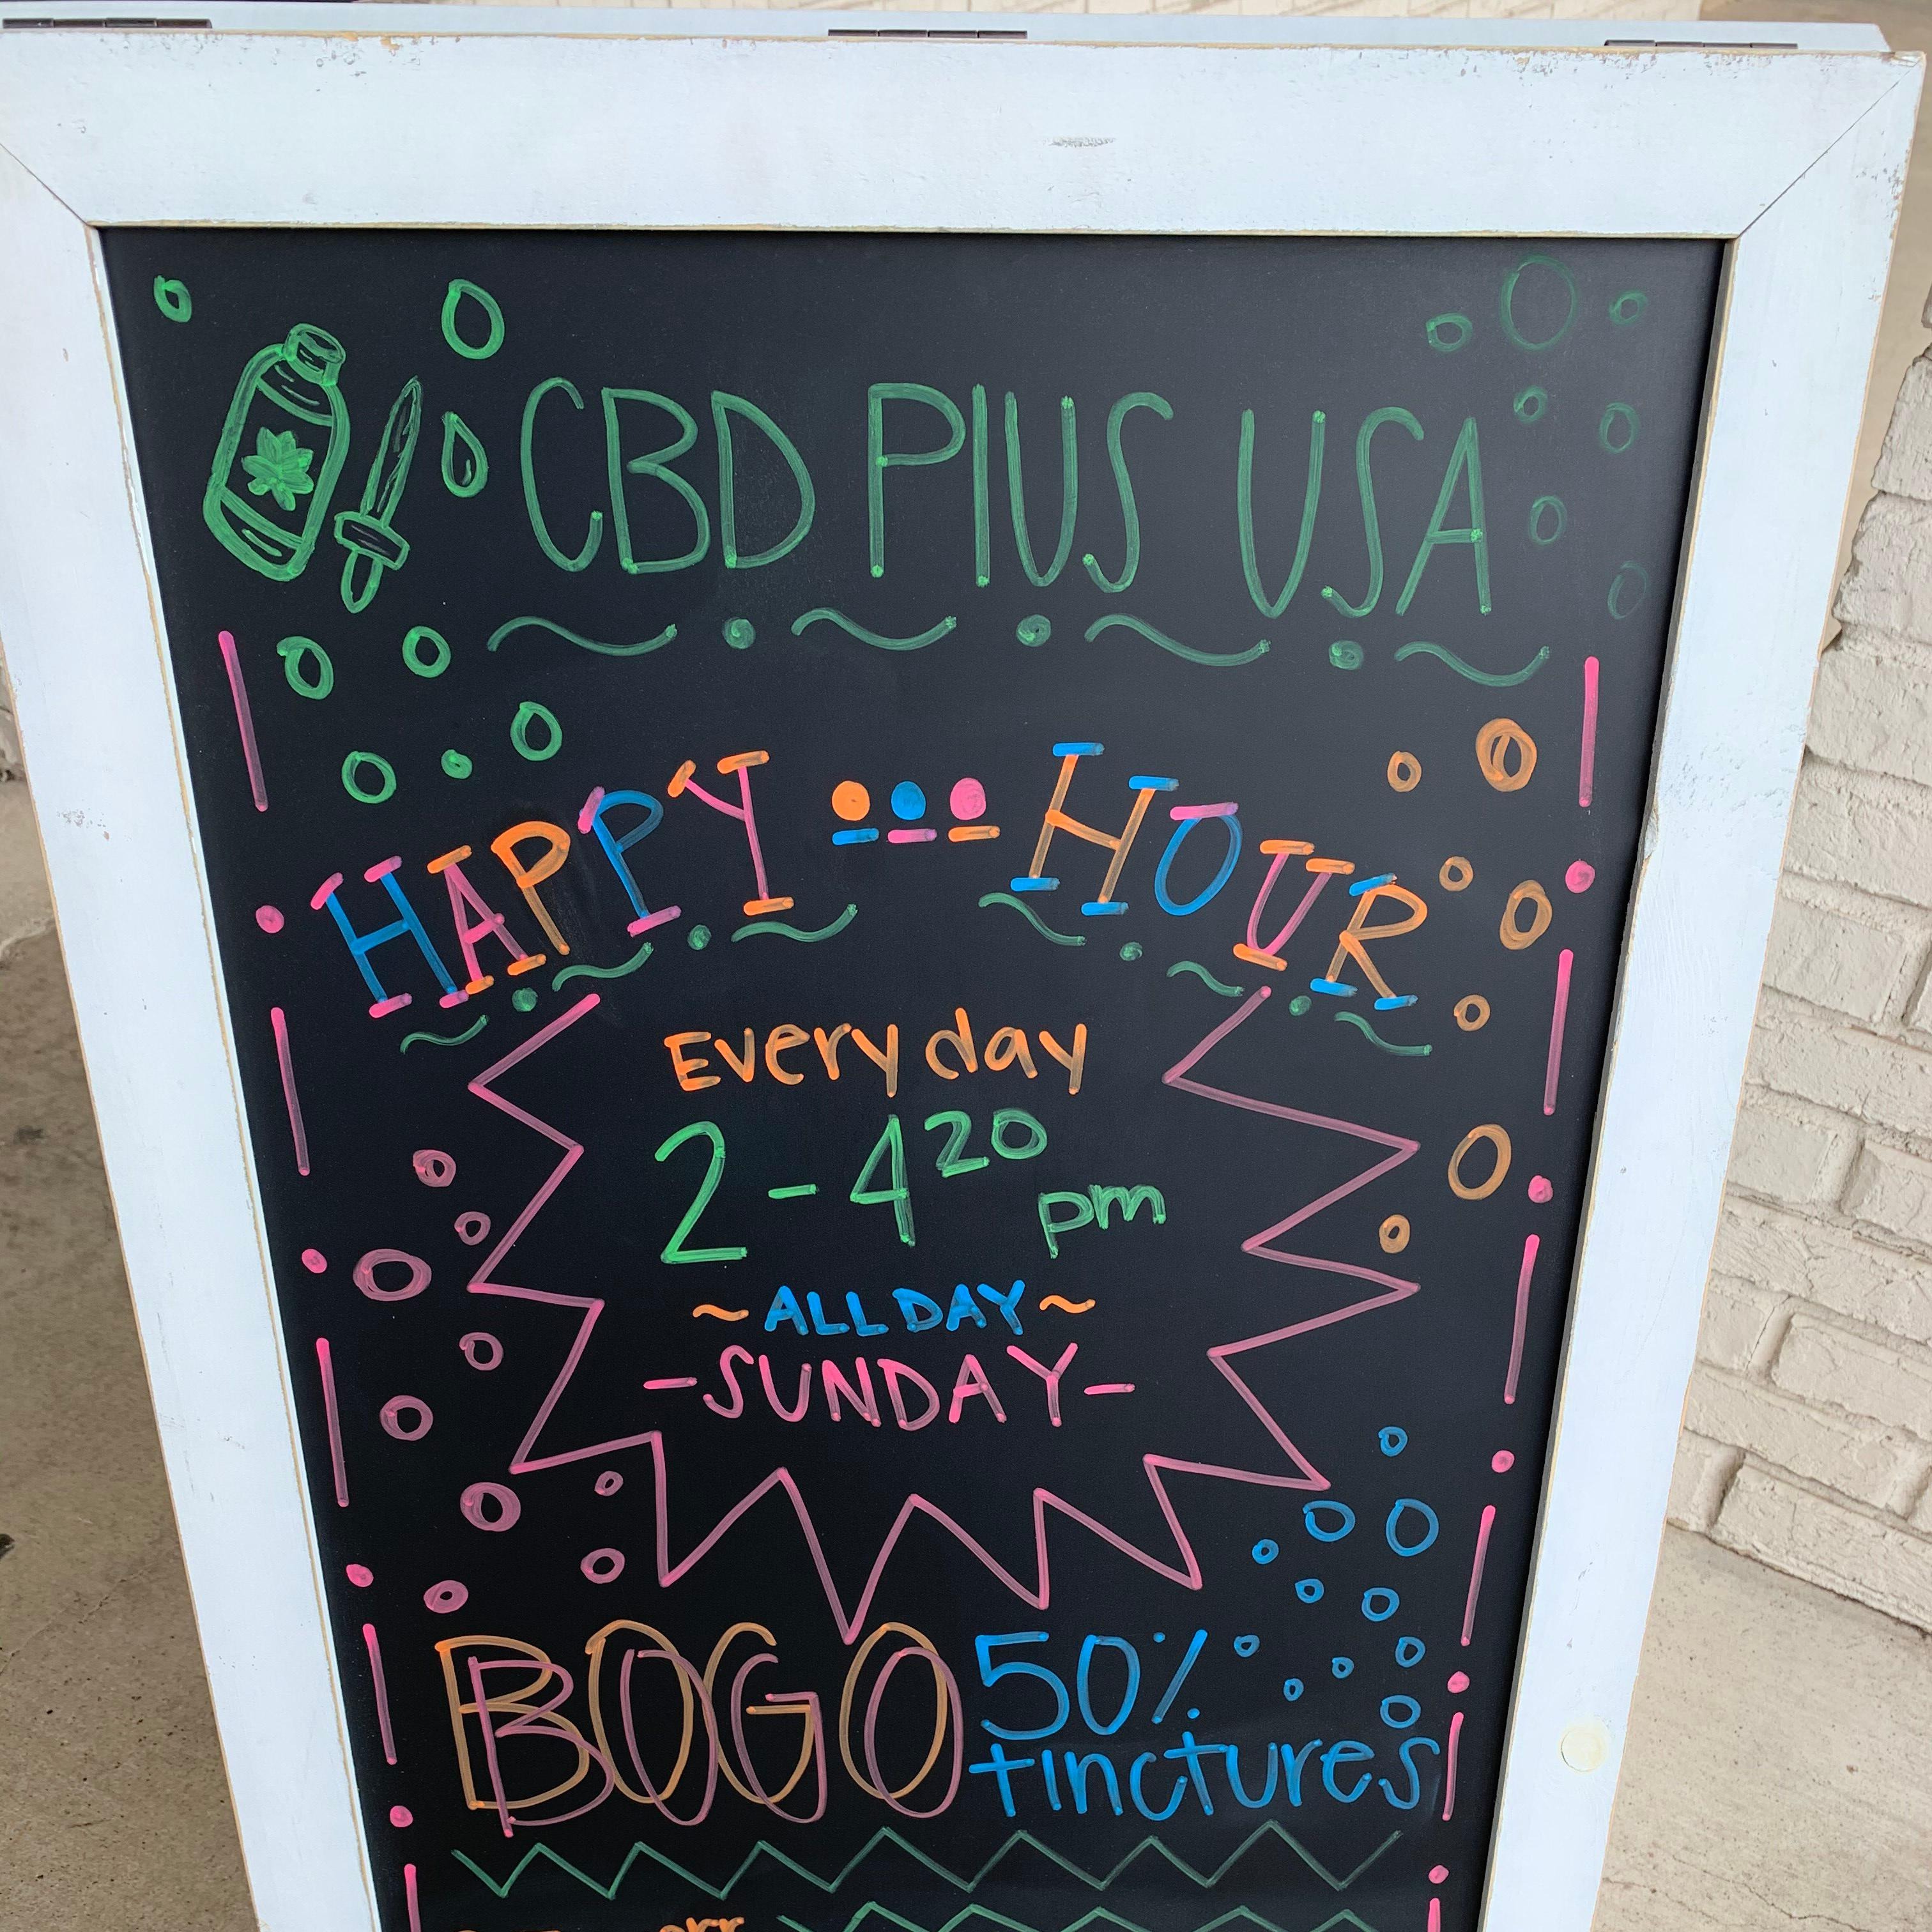 CBD PlUS USA
HAPPY HOUR
Everyday
2-4²⁰ pm
~ALL DAY~
-SUNDAY-
BOGO 50%
tinctures